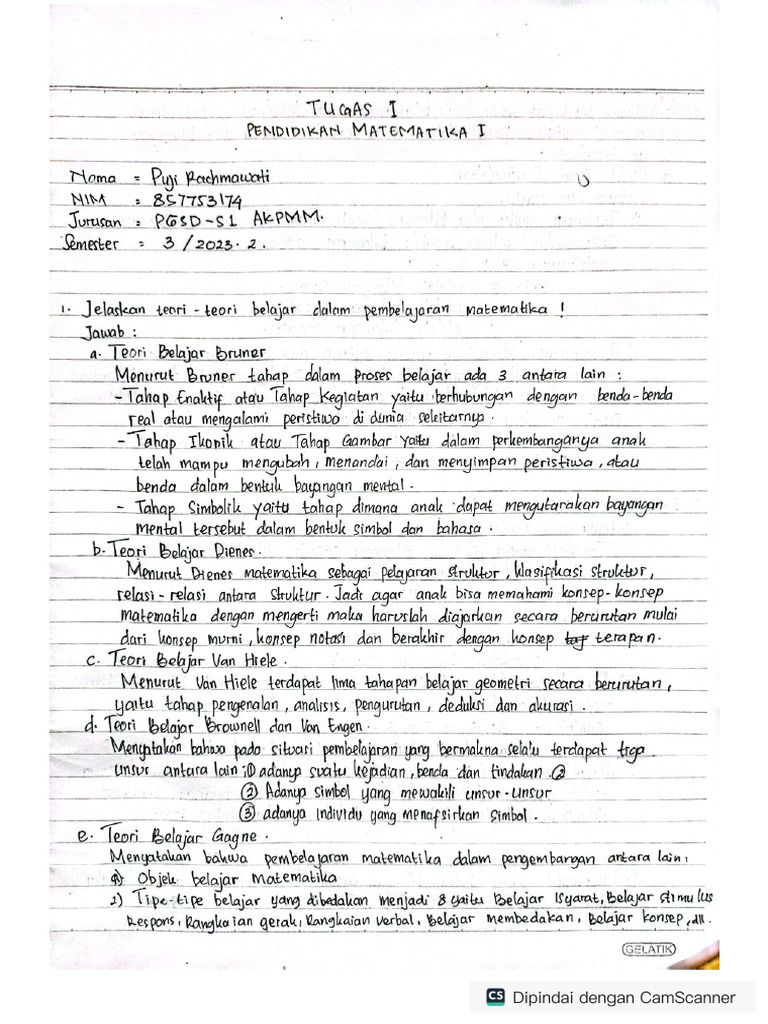 TUGAS I
PENDIDIKAN MATEMATIKA I
Nama = Puji Rachmawati
NIM : 857753174
Jurusan : PGSD-S1 AKPMM.
Semester = 3 / 2023.2.
1. Jelaskan teori-teori belajar dalam pembelajaran matematika !
Jawab :
a. Teori Belajar Bruner
Menurut Bruner tahap dalam proses belajar ada 3 antara lain :
- Tahap Enaktif atau Tahap Kegiatan yaitu berhubungan dengan benda-benda
real atau mengalami peristiwa di dunia sekitarnya.
- Tahap Ikonik atau Tahap Gambar yaitu dalam perkembanganya anak
telah mampu mengubah, menandai, dan menyimpan peristiwa, atau
benda dalam bentuk bayangan mental.
- Tahap Simbolik yaitu tahap dimana anak dapat mengutarakan bayangan
mental tersebut dalam bentuk simbol dan bahasa.
b. Teori Belajar Dienes.
Menurut Dienes matematika sebagai pelajaran struktur, klasifikasi struktur,
relasi-relasi antara struktur. Jadi agar anak bisa memahami konsep-konsep
matematika dengan mengerti maka haruslah diajarkan secara berurutan mulai
dari konsep murni, konsep notasi dan berakhir dengan konsep terapan.
c. Teori Belajar Van Hiele.
Menurut Van Hiele terdapat lima tahapan belajar geometri secara berurutan,
yaitu tahap pengenalan, analisis, pengurutan, deduksi dan akurasi.
d. Teori Belajar Brownell dan Van Engen.
Menyatakan bahwa pada situasi pembelajaran yang bermakna selalu terdapat tiga
unsur antara lain : ① adanya suatu kejadian, benda dan tindakan. ②
② Adanya simbol yang mewakili unsur-unsur
③ adanya individu yang menafsirkan simbol.
e. Teori Belajar Gagne.
Menyatakan bahwa pembelajaran matematika dalam pengembangan antara lain :
1) Objek belajar matematika
2) Tipe-tipe belajar yang dibedakan menjadi 8 yaitu Belajar Isyarat, Belajar stimulus
Respons, Rangkaian gerak, Rangkaian verbal, Belajar membedakan, Belajar konsep, dll.
GELATIK
CS Dipindai dengan CamScanner